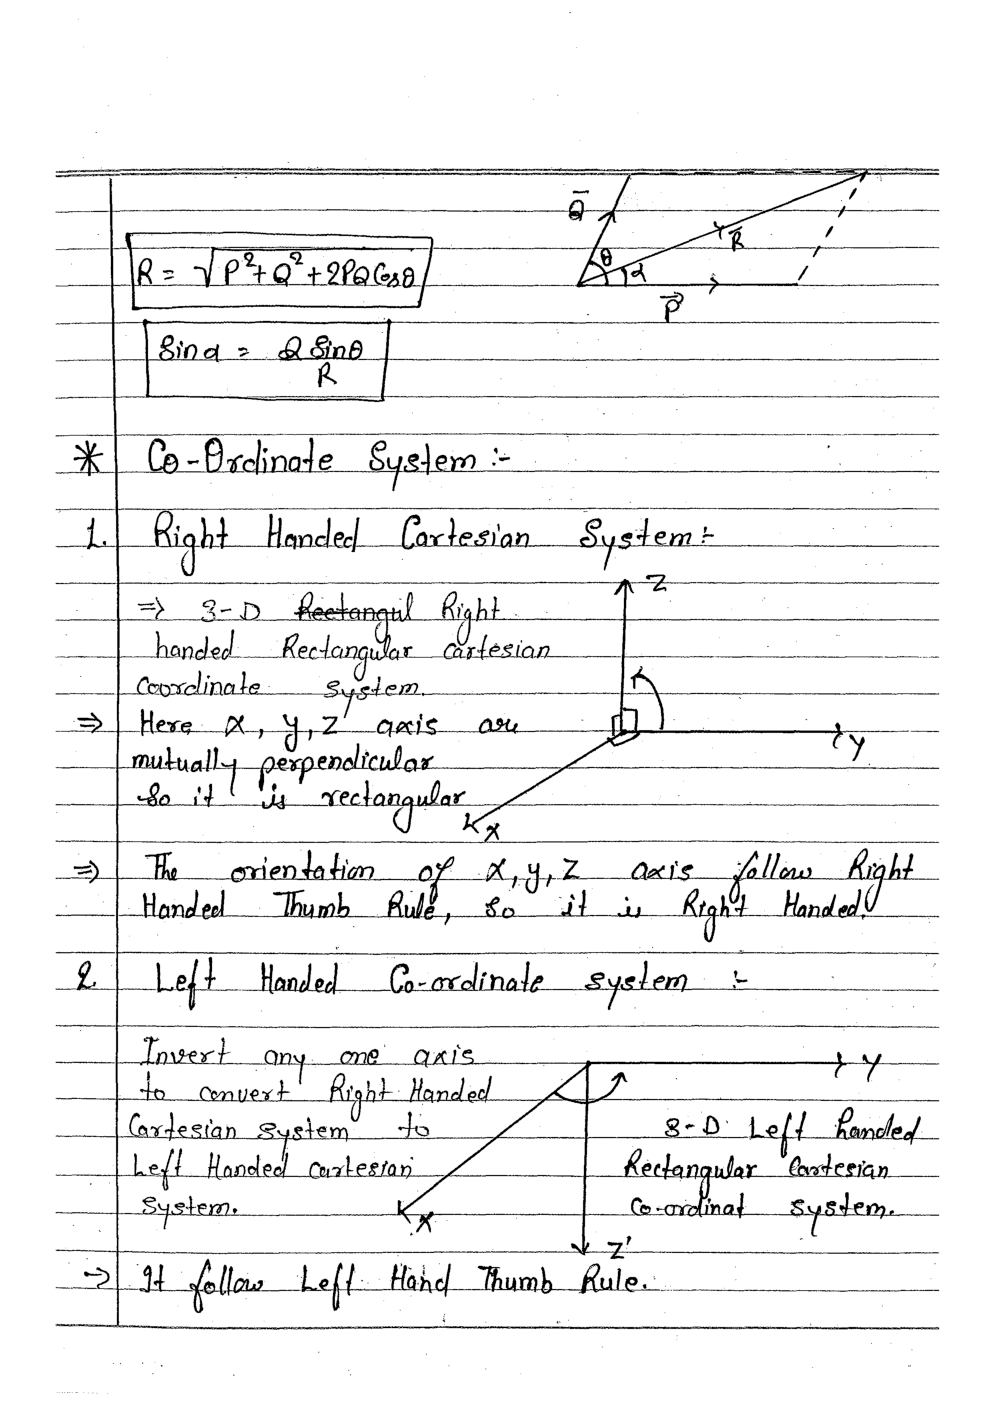 Q̄
R̄
θ
α
P⃗
R = √P²+Q²+2PQCosθ
Sinα = Q Sinθ
R
* Co-Ordinate System :-
1. Right Handed Cartesian System :-
⇒ 3-D Rectangul Right
handed Rectangular cartesian
Coordinate System.
⇒ Here x, y, z axis are
mutually perpendicular
So it is rectangular
Z
Y
X
⇒ The orientation of x, y, z axis follow Right
Handed Thumb Rule, so it is Right Handed.
2. Left Handed Co-ordinate system :-
Invert any one axis
to convert Right Handed
Cartesian system to
Left Handed cartesian
System.
Y
X
Z'
3-D Left handed
Rectangular Cartesian
Co-ordinat system.
→ It follow Left Hand Thumb Rule.